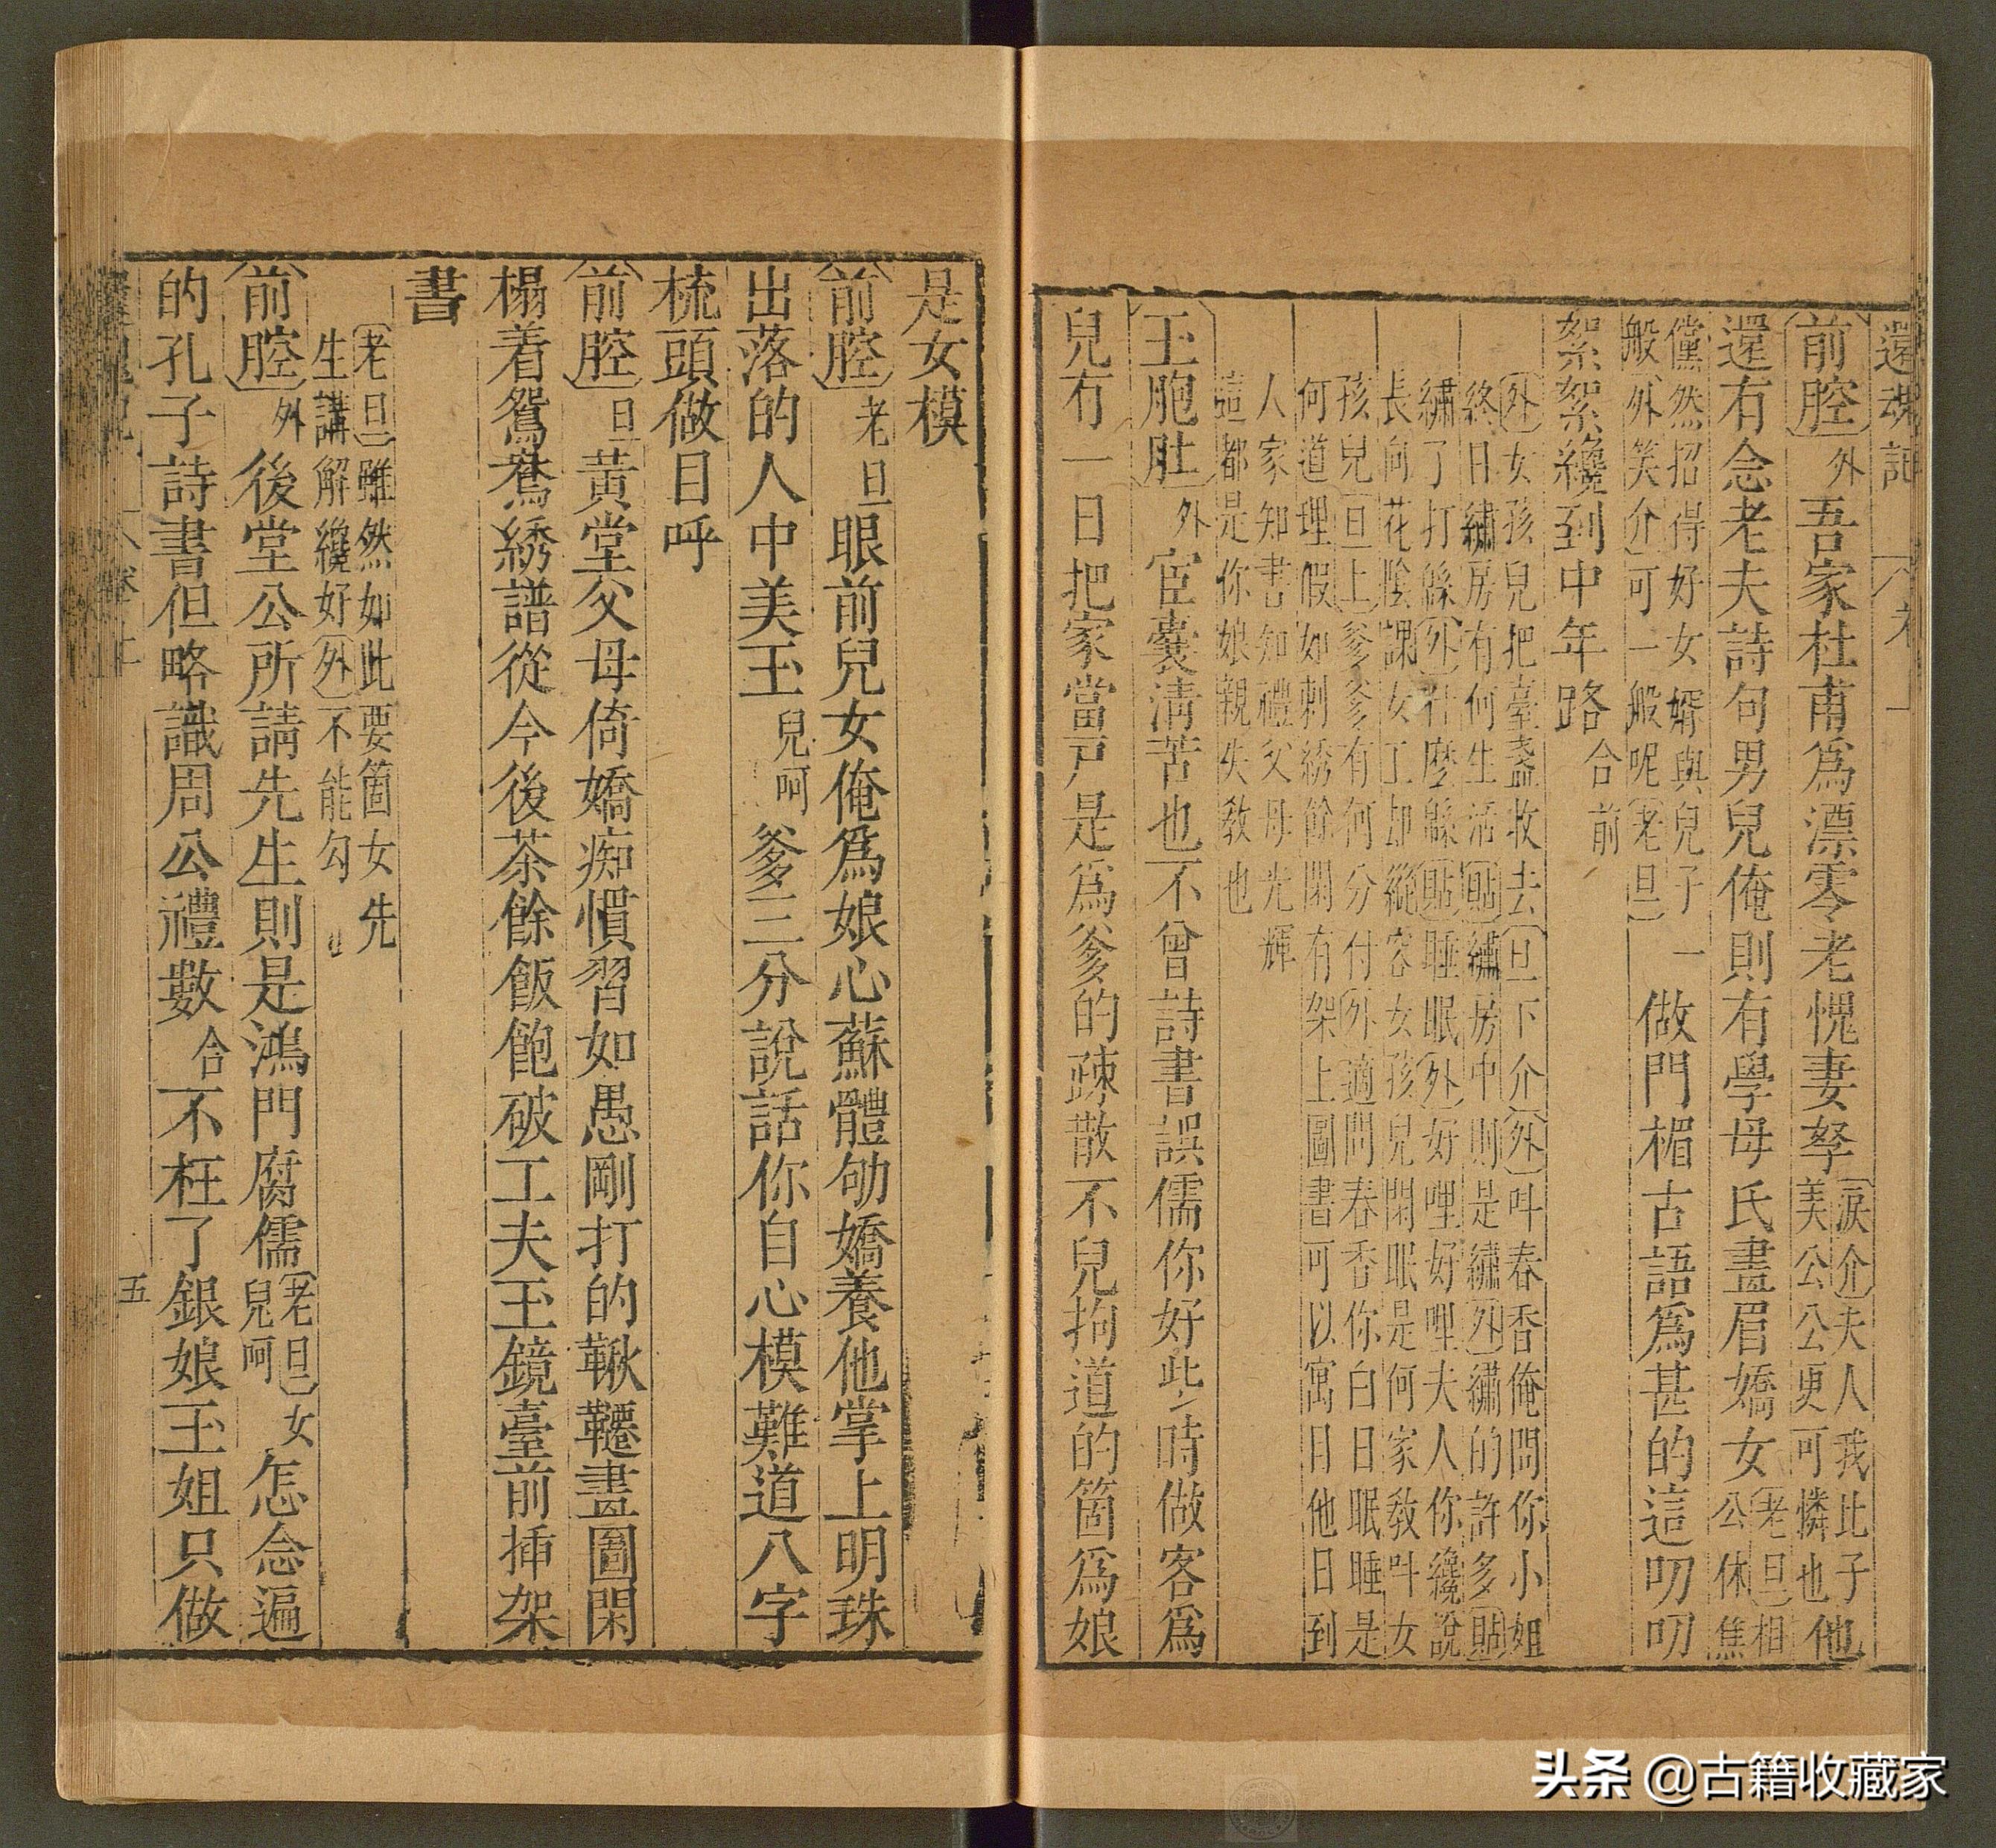 還魂記 卷一
前腔 外 吾家杜甫爲漂零老愧妻孥 淚介 夫人我比子美公公更可憐也 他
還有念老夫詩句男兒俺則有學母氏畫眉嬌女 老旦 相公休焦
儻然招得好女婿與兒子一般 外笑介 可一般呢 老旦 做門楣古語爲甚的這叨叨
絮絮纔到中年路 合前
外 女孩兒把臺盞收去 旦下介 外 叫春香俺問你小姐
終日繡房有何生活 貼 繡房中則是繡 外 繡的許多 貼
繡了打緜 外 什麽緜 貼 睡眠 外 好哩好哩夫人你纔說
長向花陰課女工却縱容女孩兒閑眠是何家教叫女
孩兒 旦上 爹爹有何分付 外 適問春香你白日眠睡是
何道理假如刺綉餘閑有架上圖書可以寓目他日到
人家知書知禮父母光輝
這都是你娘親失教也
玉胞肚 外 宦囊清苦也不曾詩書誤儒你好些時做客爲
兒有一日把家當戶是爲爹的疎散不兒拘道的箇爲娘
是女模
前腔 老旦 眼前兒女俺爲娘心蘇體劬嬌養他掌上明珠
出落的人中美玉 兒呵 爹三分說話你自心模難道八字
梳頭做目呼
前腔 旦 黃堂父母倚嬌痴慣習如愚剛打的鞦韆畫圖閑
榻着鴛鴦綉譜從今後茶餘飯飽破工夫玉鏡臺前揷架
書
老旦 雖然如此要箇女先
生講解纔好 外 不能勾
前腔 外 後堂公所請先生則是鴻門腐儒 老旦 女兒呵 怎念遍
的孔子詩書但略識周公禮數 合 不枉了銀娘玉姐只做
五
头条 @古籍收藏家